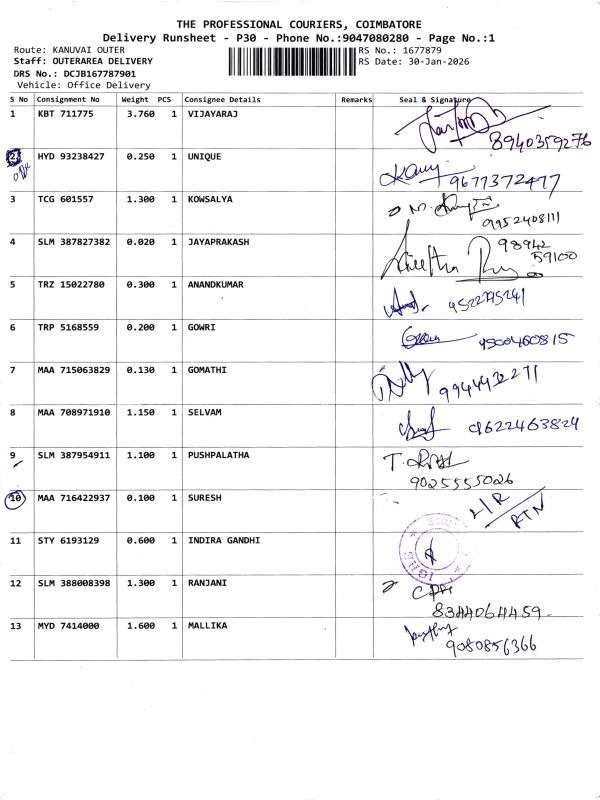 THE PROFESSIONAL COURIERS, COIMBATORE
Delivery Runsheet - P30 - Phone No.:9047080280 - Page No.:1
Route: KANUVAI OUTER RS No.: 1677879
Staff: OUTERAREA DELIVERY RS Date: 30-Jan-2026
DRS No.: DCJB167787901
Vehicle: Office Delivery
S No Consignment No Weight PCS Consignee Details Remarks Seal & Signature
1 KBT 711775 3.760 1 VIJAYARAJ
8940359276
2 HYD 93238427 0.250 1 UNIQUE
9677372477
3 TCG 601557 1.300 1 KOWSALYA
9952408111
4 SLM 387827382 0.020 1 JAYAPRAKASH 98942
59100
5 TRZ 15022780 0.300 1 ANANDKUMAR
9522795241
6 TRP 5168559 0.200 1 GOWRI
9500460815
7 MAA 715063829 0.130 1 GOMATHI
9944432271
8 MAA 708971910 1.150 1 SELVAM
9622463824
9 SLM 387954911 1.100 1 PUSHPALATHA
9025555026
10 MAA 716422937 0.100 1 SURESH
L/R
RTN
11 STY 6193129 0.600 1 INDIRA GANDHI
12 SLM 388008398 1.300 1 RANJANI
8344064459
13 MYD 7414000 1.600 1 MALLIKA
9080856366